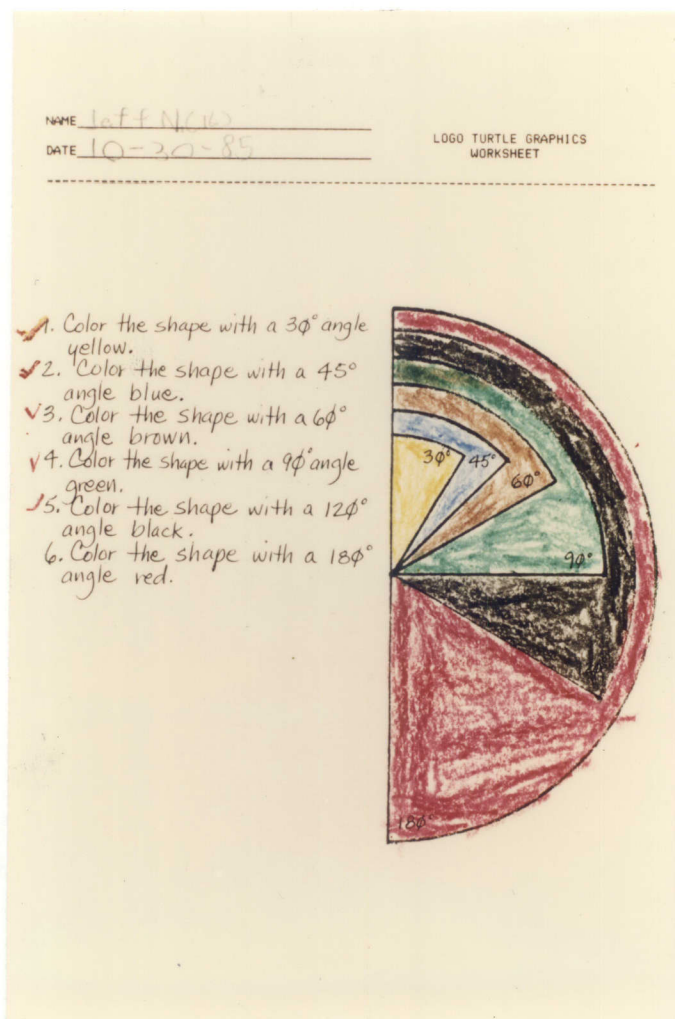 NAME
DATE 10-30-85
LOGO TURTLE GRAPHICS
WORKSHEET
1. Color the shape with a 3Ø° angle
yellow.
2. Color the shape with a 45°
angle blue.
3. Color the shape with a 6Ø°
angle brown.
4. Color the shape with a 9Ø° angle
green.
5. Color the shape with a 12Ø°
angle black.
6. Color the shape with a 18Ø°
angle red.
3Ø°
45°
6Ø°
9Ø°
18Ø°